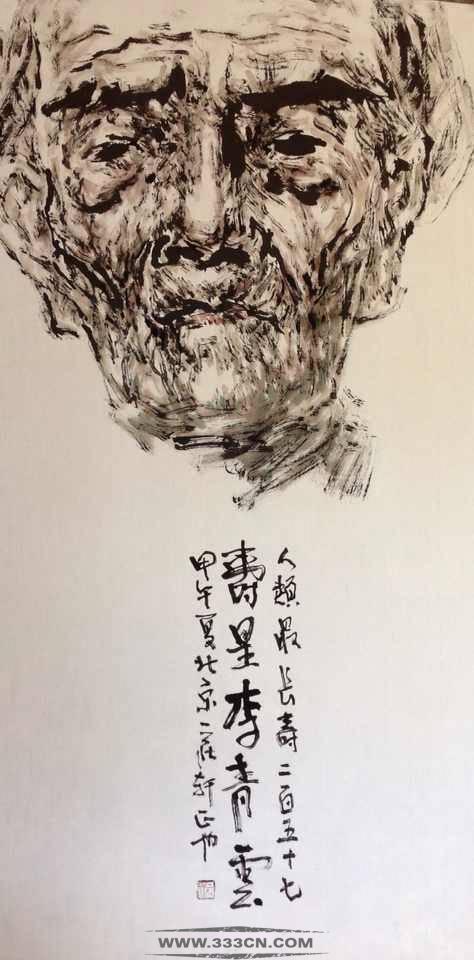 人類最長壽二百五十七
壽星李青雲
甲午夏北京二莊軒正也
WWW.333CN.COM